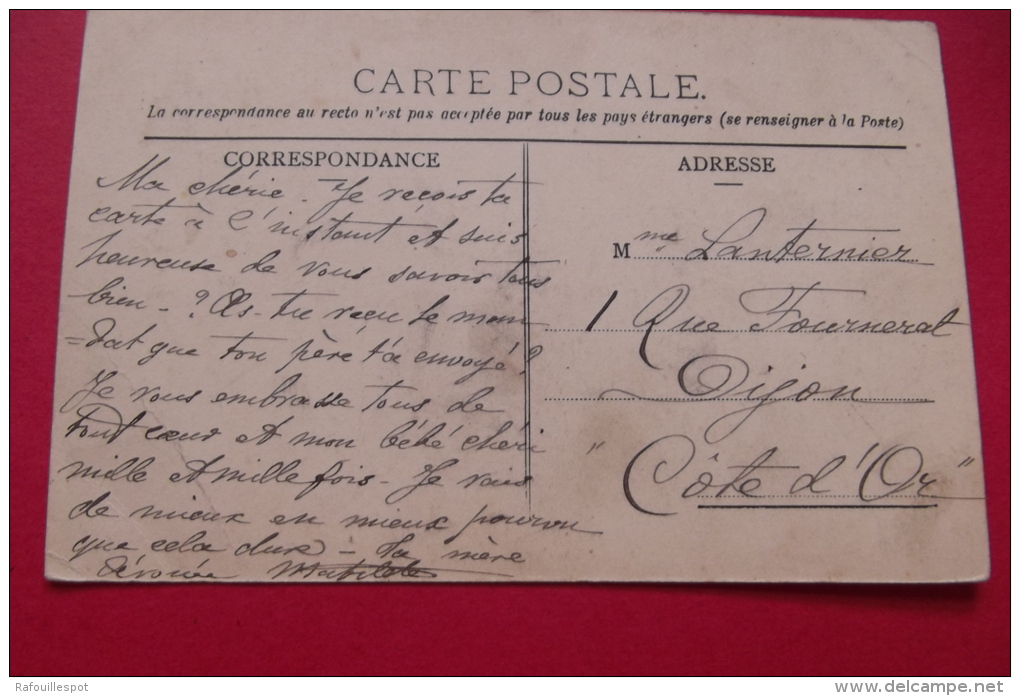 CARTE POSTALE.
La correspondance au recto n'est pas acceptée par tous les pays étrangers (se renseigner à la Poste)
CORRESPONDANCE
Ma chérie. Je reçois ta
carte à l'instant et suis
heureuse de vous savoir tous
bien - ? As-tu reçu le man
=dat que ton père t'a envoyé ?
Je vous embrasse tous de
tout cœur et mon bébé chéri
mille et mille fois - Je vais
de mieux en mieux pourvu
que cela dure - Ta mère
dévouée Mathilde
ADRESSE
Mme Lanternier
1 Rue Fourneret
Dijon
"Côte d'Or"
Rafouillespot
www.delcampe.net